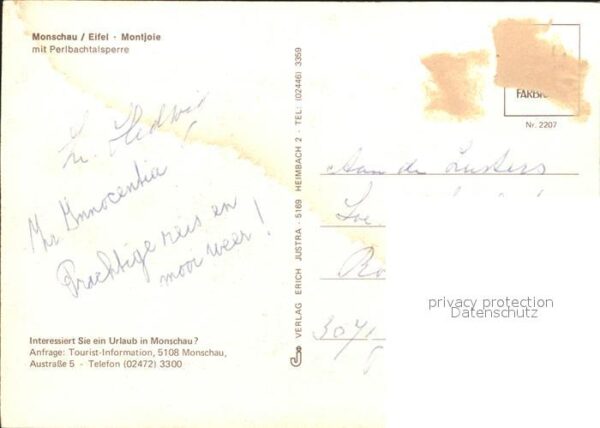 Monschau / Eifel · Montjoie
mit Perlbachtalsperre
Zr. Hedwig
Innocentia
Prachtige reis en
mooi weer!
Interessiert Sie ein Urlaub in Monschau?
Anfrage: Tourist-Information, 5108 Monschau,
Austraße 5 - Telefon (02472) 3300
VERLAG ERICH JUSTRA · 5169 HEIMBACH 2 · TEL: (02446) 3359
Nr. 2207
Aan de Zusters
privacy protection
Datenschutz